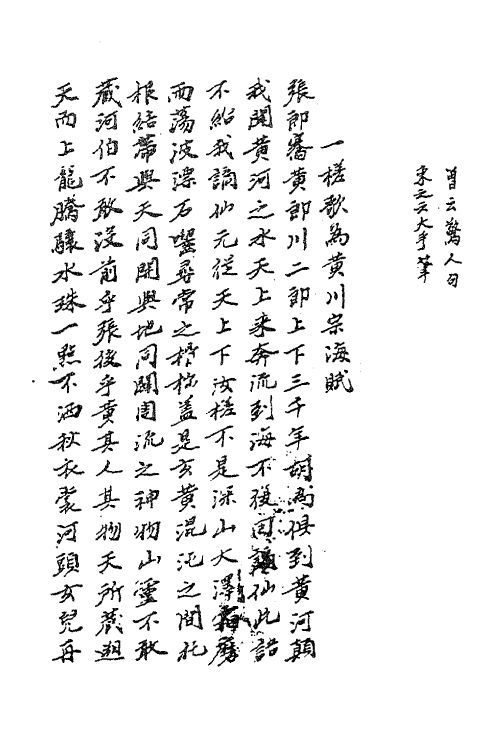 曽云驚人句
宋之文大手筆
一槎歌為黄川宗海賦
張郎審黄郎川二郎上下三千年胡為俱到黄河顛
我聞黄河之水天上来奔流到海不復回謫仙此語
不紿我謫仙元従天上下汝槎不是深山大澤
而蕩波漂石囓尋常之槎盖是玄黄混沌之間托
根結蒂與天同開與地同闢周流之神物山靈不敢
蔵河伯不敢没前乎張後乎黄其人其物天所蔵遡
天而上龍騰驤水珠一㸃不洒秋衣裳河頭女兒再